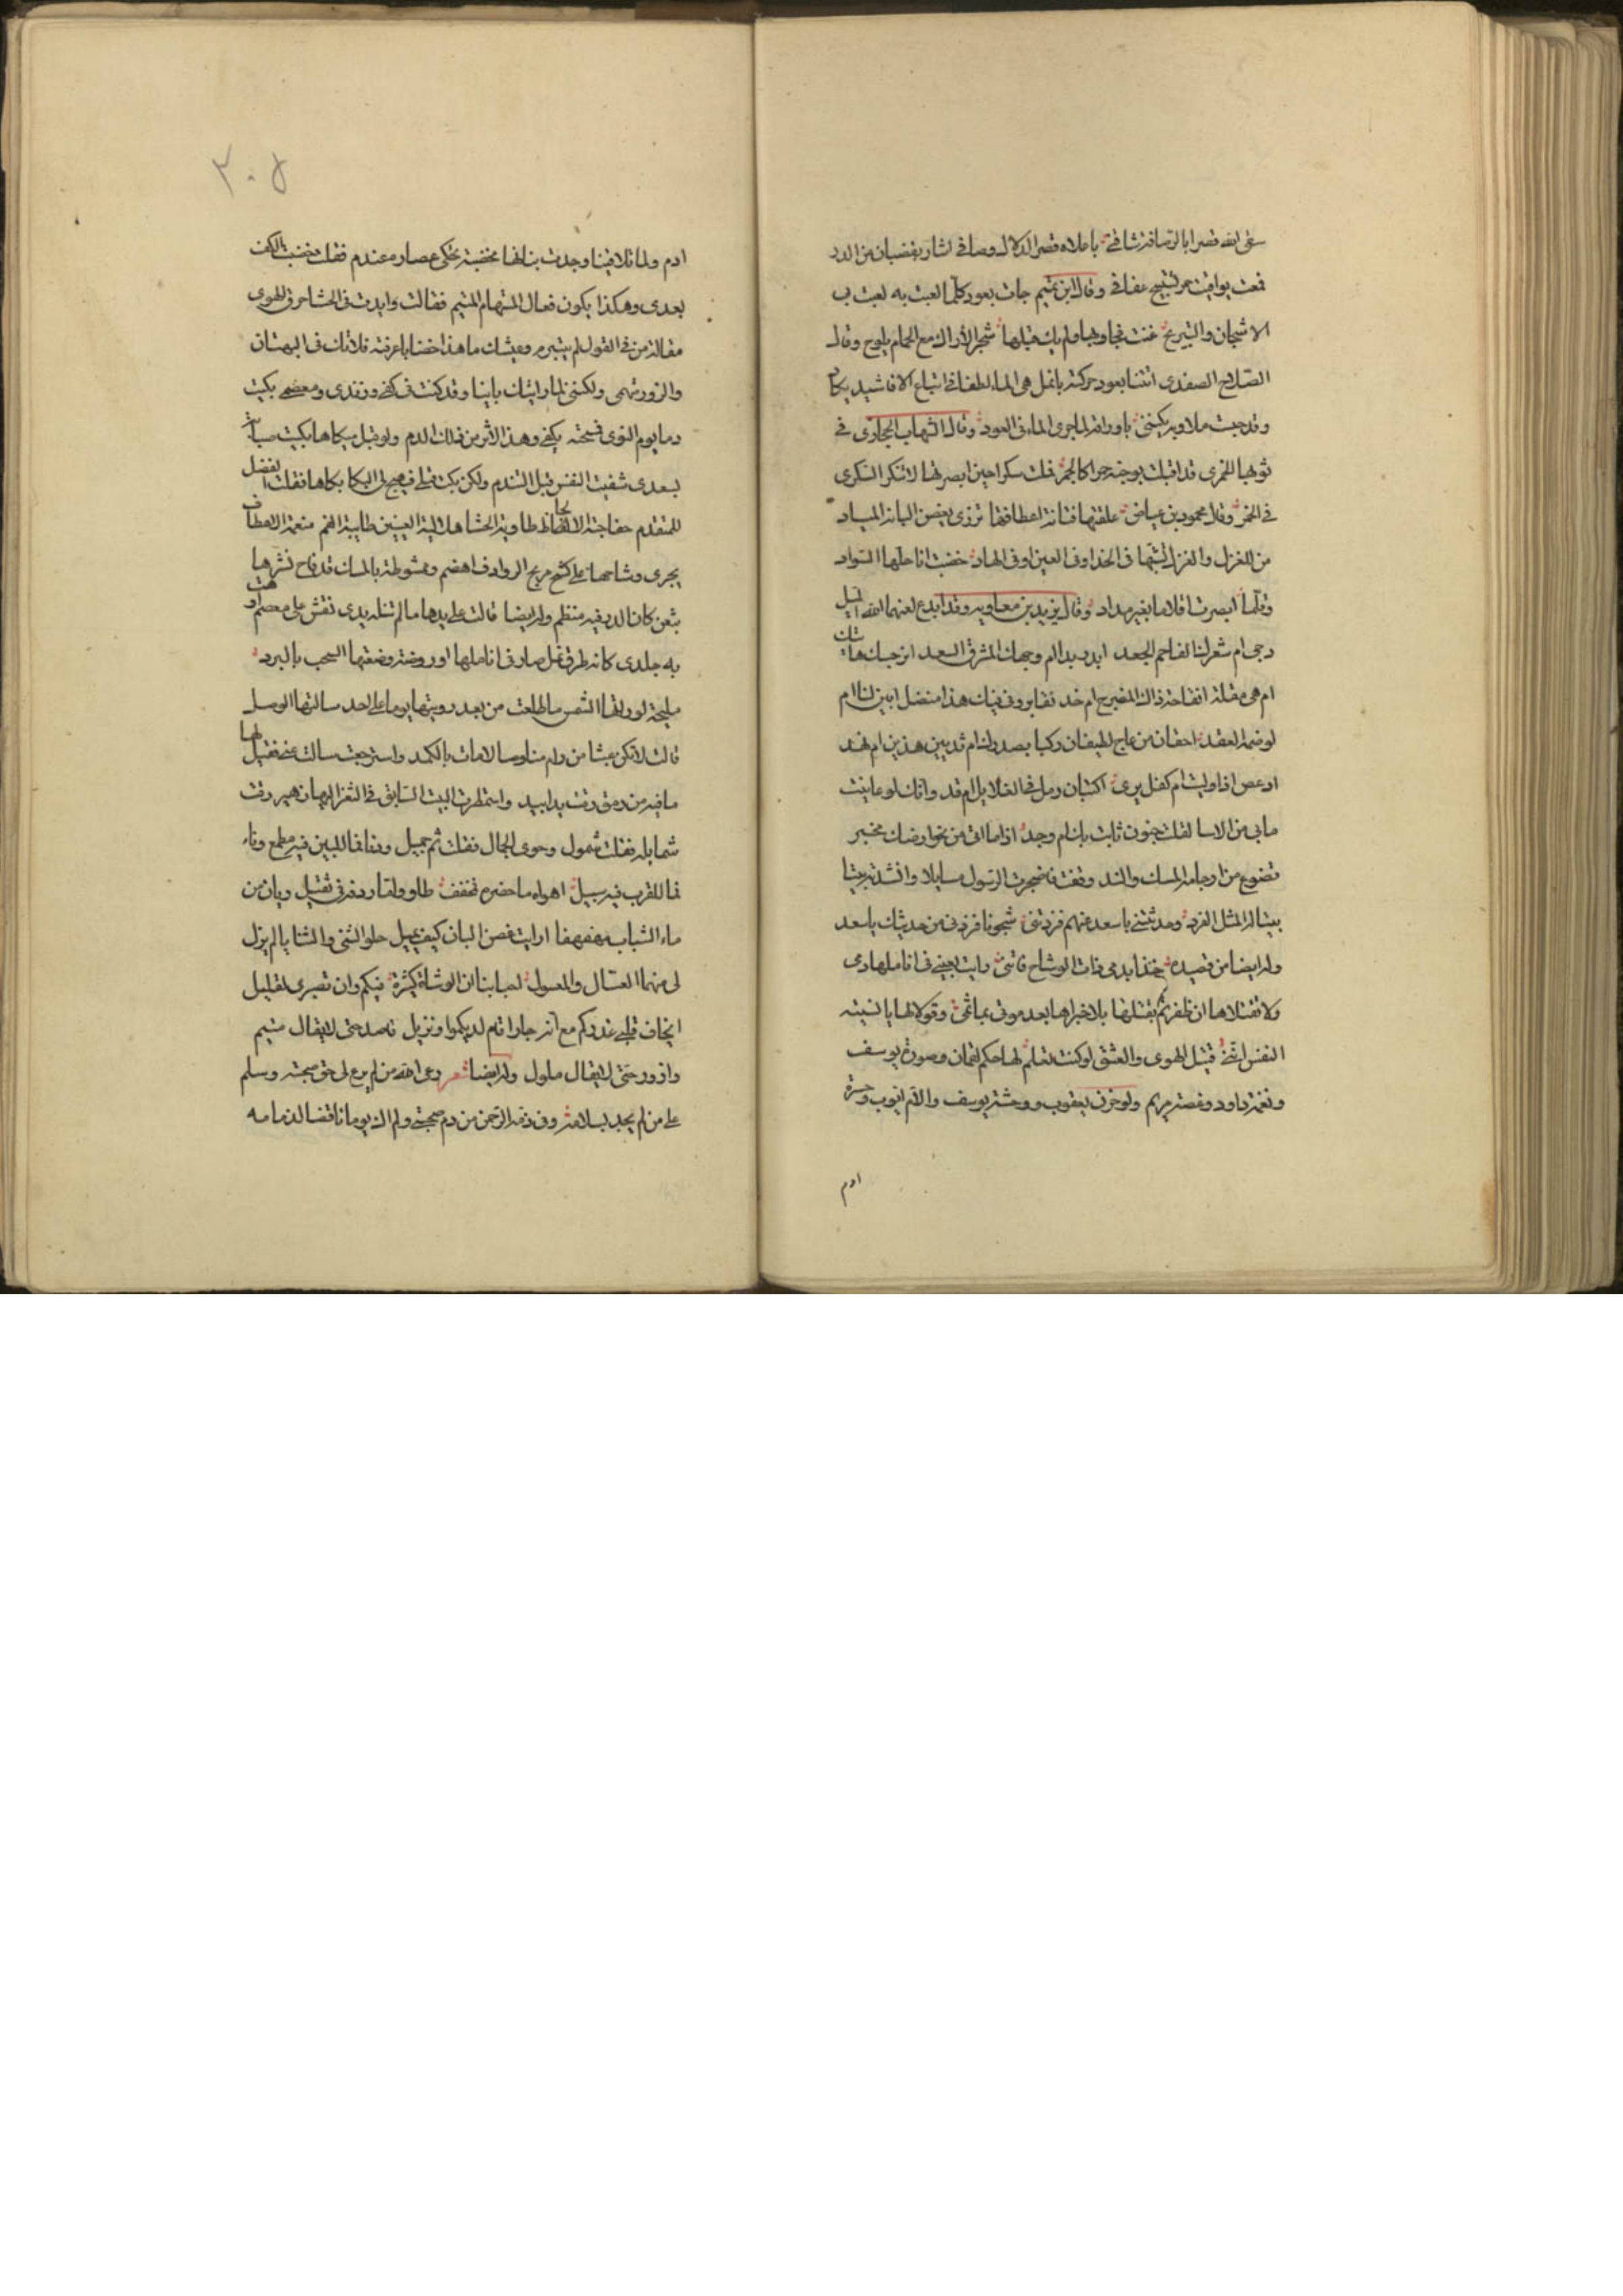 سقى الله قصرا بالرصافة شاقني باعلاه قصر الدلال رصافي اشار بقضبان من الدر
قمعت يواقيت عقافي وقال ابن تميم جات بعود كلما لعبت به لعبت بي
الاشجان والتبريح غنت فجاوبها ولم يك قبلها شجر الاراك مع الحمام يلوح وقال
الصلاح الصفدي اتتنا بعود حركته بانمل هي الماء لطفا في اتباع الاناشيد يكاد
وقد جست ملاويه يكتسي باوراقه لما جرى الماء في العود وقال الشهاب الحجازي في
ثوبها الخمري قد اقبلت بوجنة حمرا كالجمر فملت سكرا حين ابصرتها لا تنكر السكرى
في الخمر وقال محمود بن عياض علقتها فتانة اعطافها تزري بغصن البانة المياد
من للغزال والغزالة تشبهها في الخد او في العين او في الهاد خضبت اناملها السواد
وقلما ابصرت اقلاما بغير مداد وقال يزيد بن معاويه وقد ابدع لعنهما الله اليل
دجى ام شعرك الفاحم الجعد ابدر بدا ام وجهك المشرق السعد انرجسك هاتيك
ام هي مقلة اتفاحة ذاك المضرج ام خد نقا برد في فيك هذا منضد ابين لنا ام
لو ضمه العقد احقان من عاج لطيفان ركبا بصدرك ام ثديين هذين ام نهد
ادعص اذا وليت ام كفل يرى اكثبان رمل في الغلايل ام قد وانك لو عاينت
ما بي من الاسا لقلت جنون ثابت بك ام وجد اذا ما اتى من نحو ارضك مخبر
تضوع من ارجائه المسك والند وقفت فاضجرت الرسول مسايلا وانشدته بيتا
بيتا له المثل الفرد وحدثتني يا سعد عنهم فزدتني شجونا فزدني من حديثك يا سعد
وله ايضا من قصيده خذا بدمي ذات الوشاح فانني رايت بعيني في اناملها دمي
ولا تقتلاها ان ظفرتم بقتلها بلا خبراها بعد موتي بماتمي وقولا لها يا منية
النفس انني قتيل الهوى والعشق لو كنت تعلم لها حكم لقمان وصورة يوسف
ونغمة داود وعفة مريم ولي حزن يعقوب ووحشة يوسف والام ايوب وحسرة
ادم
٢٠٥
ادم ولما تلاقينا وجدت بنانها مخضبة تحكي عصارة عندم فقلت خضبت الكف
بعدي وهكذا يكون فعال المستهام المتيم فقالت وابدت في الحشا حرق الهوى
مقالة من في القول لم يتبرم وعيشك ما هذا خضابا عرفته فلا تك في البهتان
والزور تهمي ولكنني لما رايتك باينا وقد كنت في كفي وزندي ومعصمي بكيت
دما يوم النوى فمسحته بكفي وهذا الاثر من ذلك الدم ولو قبل مبكاها بكيت صبابة
بسعدى شفيت النفس قبل التندم ولكن بكت قبلي فهيج لي البكا بكاها فقلت الفضل
للمتقدم خفاجية الالحاظ طاوية الحشا هلالية العينين طايية الفم منعمة الاعطاف
يجري وشاحها على كشح مرتج الروادف اهضم وممشوطة بالمسك قد فاح نشرها
بثغر كان الدر فيه منظم وله ايضا نالت على يدها ما لم تنله يدي نقش على معصم اوهت
به جلدي كانه طرق نمل صار في اناملها او روضة رصعتها السحب بالبرد
مليحة لو راتها الشمس ما طلعت من بعد رويتها يوما على احد سالتها الوصل
قالت لا تكن عبثا من رام منا وصالا مات بالكمد واسترجعت سالت عني فقيل لها
ما فيه من رمق دقت يدا بيد واستمطرت البيت السابق في الثغر الهيان هي رقت
شمايله فقلت شمول وحوى الجمال فقلت ثم جميل ودنا فما للبين فيه مطمع وناء
فما للقرب فيه سبيل اهواه ما خضره مخفف طاو ولما ردفه فثقيل ريان من
ماء الشباب مهفهفا ارايت غصن البان كيف يميل حلو التثني والثنايا لم يزل
لي منهما العسال والمعسول احبابنا ان الوشاة كثيرة فيكم وان تصبري لقليل
ايخاف قلبي غدركم مع انه جار اقام لديكموا ونزيل فاصد حتى لا يقال متيم
وازور حتى لا يقال ملول وله ايضا شعر رعى الله من لم يرع لي حق صحبة وسلم
على من لم يجد بسلامه وفي ذمة الرحمن من ذم صحبتي ولم اك يوما ناقضا لذمامه